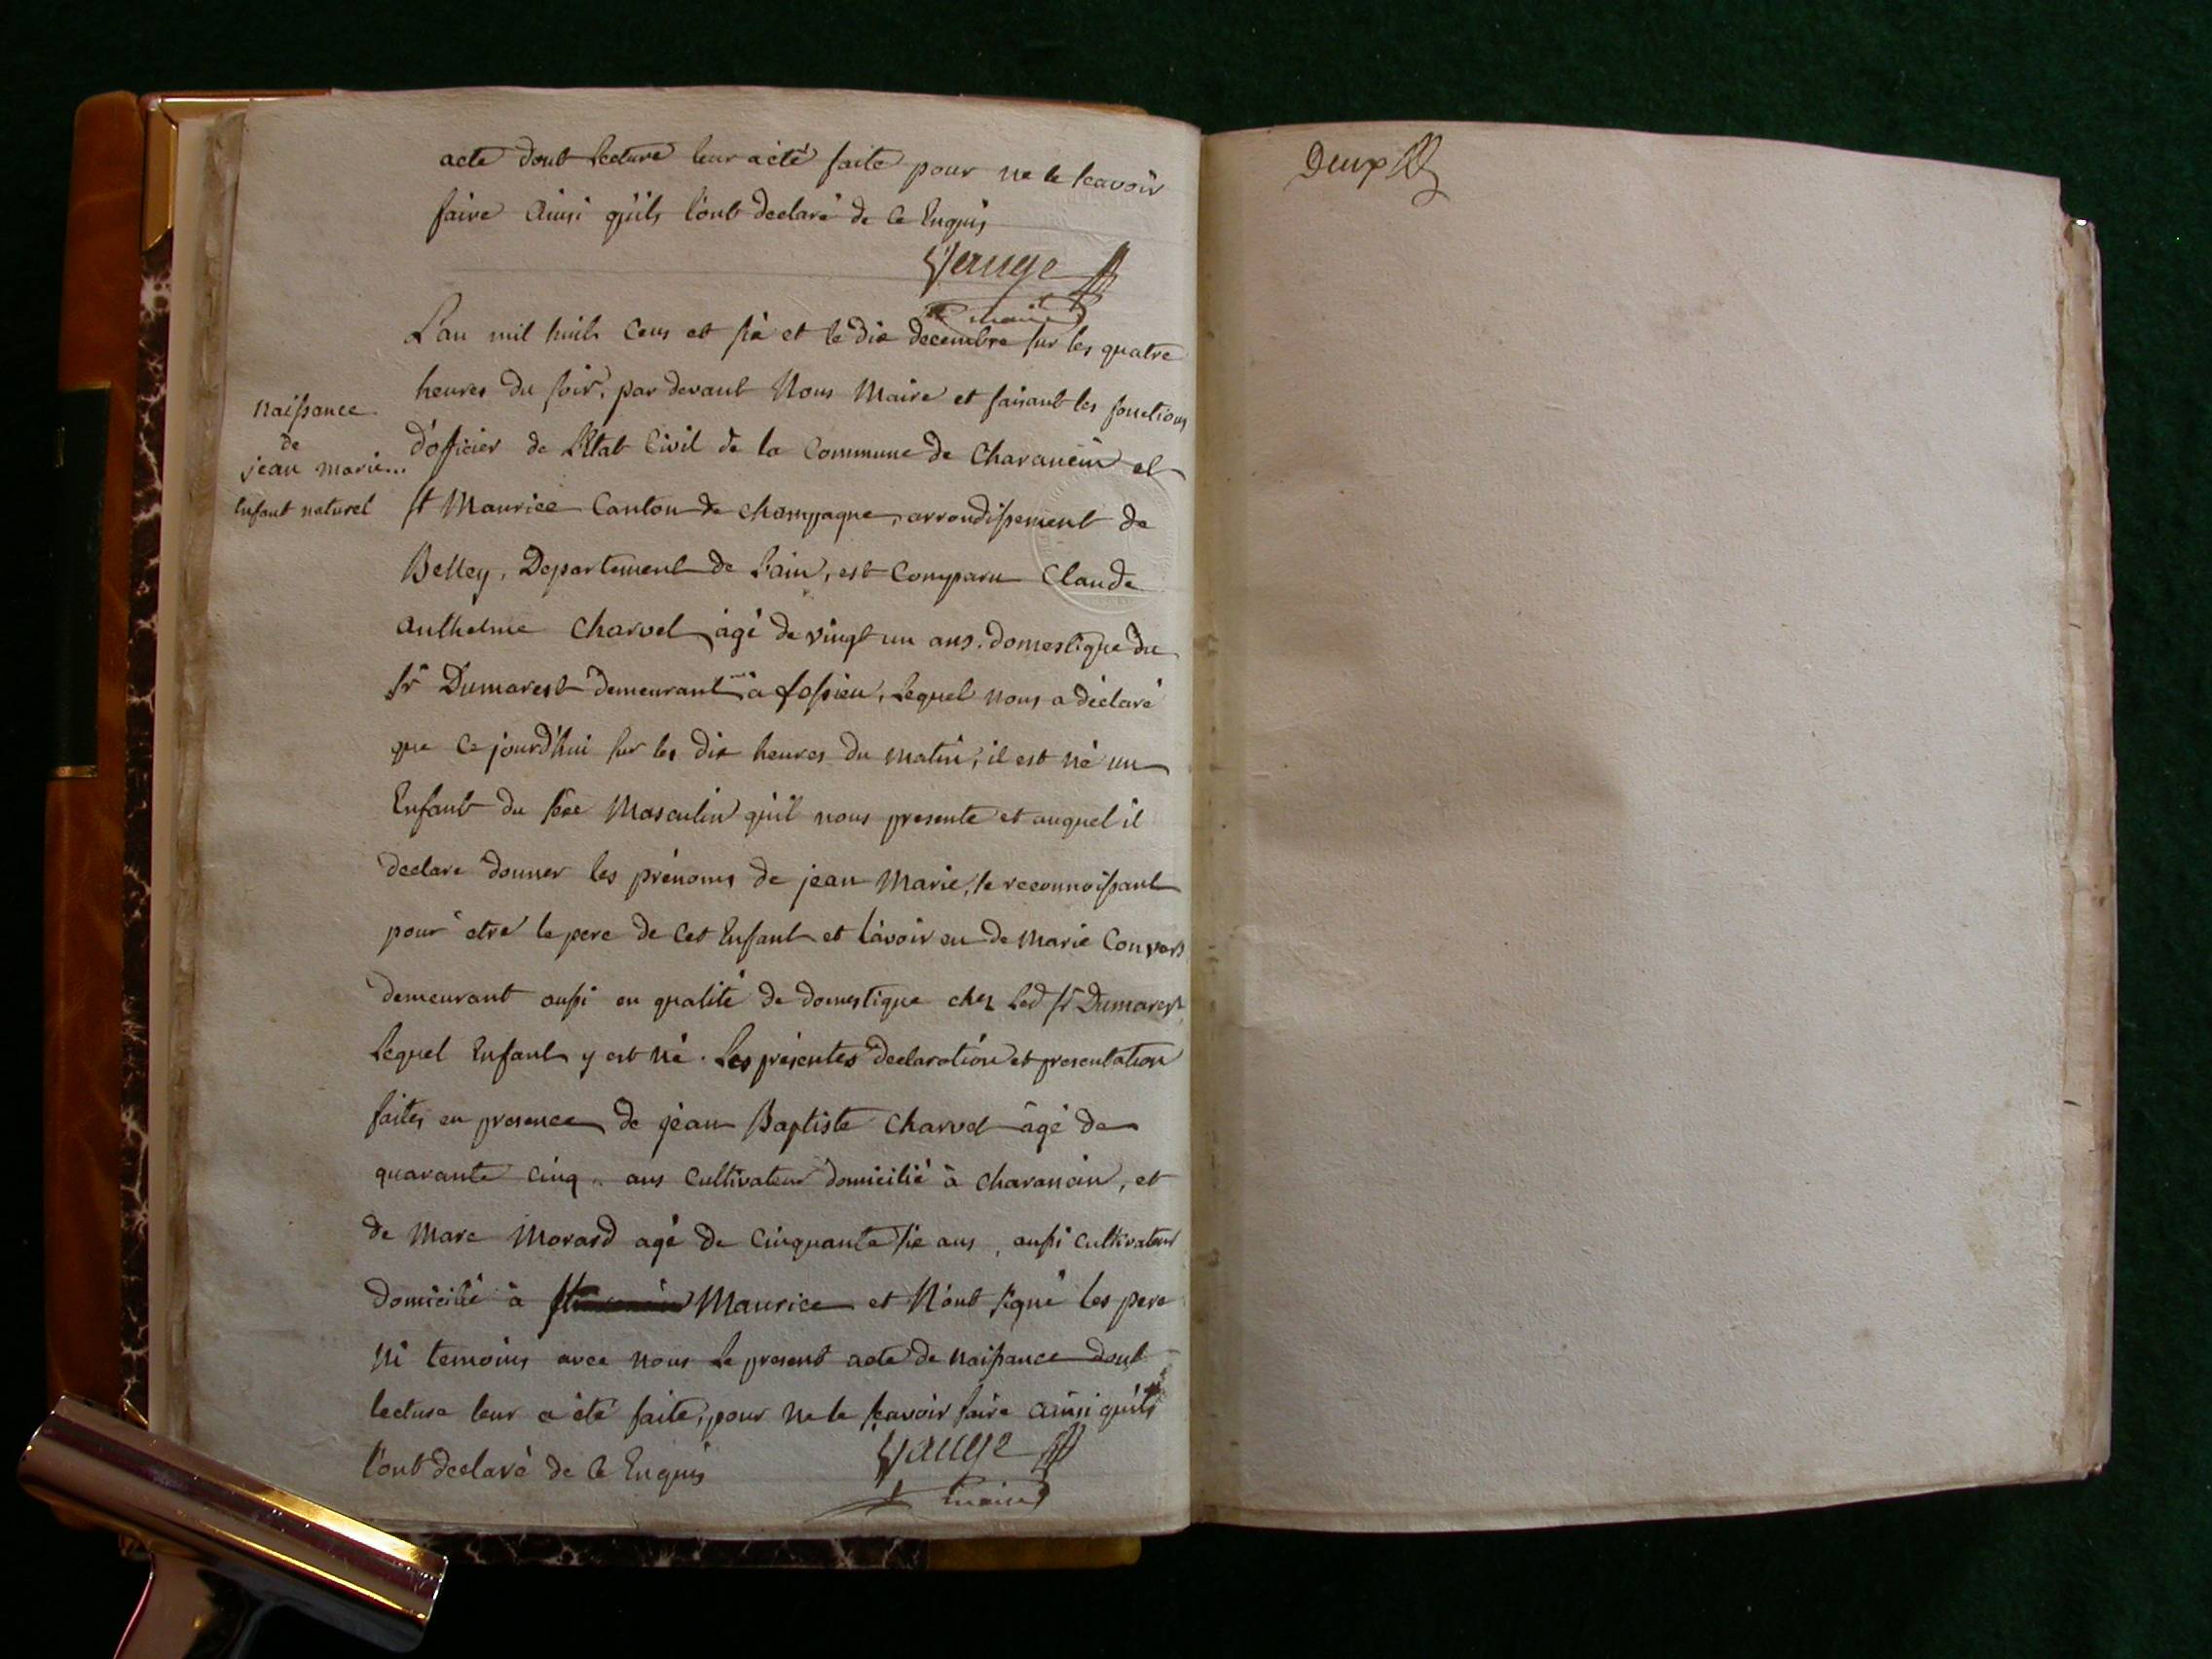 acte dont lecture leur a été faite pour ne le scavoir
faire Ainsi qu'ils l'ont declaré de ce Enquis
Vauge
maire
L'an mil huit Cens et six et le dix decembre sur les quatre
heures du soir, par devant Nous Maire et faisant les fonctions
d'officier de L'Etat Civil de la Commune de Charancin et
St Maurice Canton de champagne, arrondissement de
Belley, Departement de L'ain, est Comparu Claude
anthelme Charvet agé de vingt un ans. domestique du
Sr Dumarest demeurant à fossieu, Lequel nous a déclaré
que Ce jourd'hui sur les dix heures du matin, il est né un
Enfant du sexe Masculin qu'il nous presente et auquel il
declare donner les prénoms de jean Marie, se reconnoissant
pour etre le pere de Cet Enfant et l'avoir eu de Marie Convers
demeurant aussi en qualité de domestique chez Led Sr Dumarest
Lequel Enfant y est né. Les présentes declaration et presentation
faites en presence de jean Baptiste Charvet âgé de
quarante cinq ans Cultivateur domicilié à charancin, et
de Marc Morard agé de Cinquante six ans, aussi Cultivateur
domicilié à St Maurice et N'ont signé les pere
Ni temoins avec nous Le present acte de Naissance dont
lecture leur a été faite, pour Ne le scavoir faire ainsi qu'ils
l'ont declaré de Ce Enquis
Vauge
maire
naissance
de
jean marie...
Enfant naturel